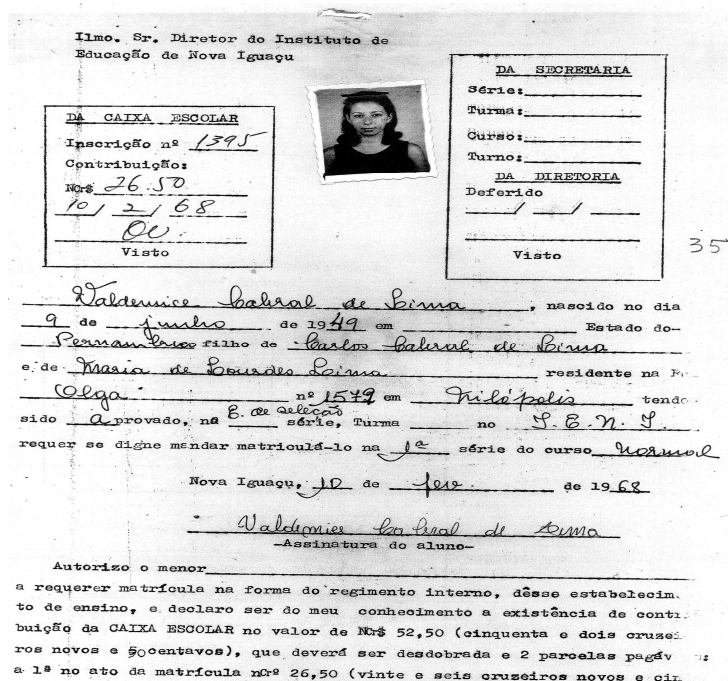 Ilmo. Sr. Diretor do Instituto de
Educação de Nova Iguaçu
DA CAIXA ESCOLAR
Inscrição nº 1395
Contribuição:
NCr$ 26.50
10/ 2/ 68
Visto
DA SECRETARIA
Série:
Turma:
Curso:
Turno:
DA DIRETORIA
Deferido
/ /
Visto
35
Valdemice Cabral de Lima, nascido no dia
9 de junho de 1949 em Estado do-
Pernambuco filho de Carlos Cabral de Lima
e de Maria de Lourdes Lima residente na R.
Olga nº 1579 em Nilópolis tendo
sido aprovado, na E. de seleção série, Turma no I. E. N. I.
requer se digne mandar matriculá-lo na 1ª série do curso Normal
Nova Iguaçu, 10 de fev. de 1968
Valdemice Cabral de Lima
-Assinatura do aluno-
Autorizo o menor
a requerer matrícula na forma do regimento interno, dêsse estabelecim.
to de ensino, e declaro ser do meu conhecimento a existência de conti
buição da CAIXA ESCOLAR no valor de NCr$ 52,50 (cinquenta e dois cruzei
ros novos e 50centavos), que deverá ser desdobrada e 2 parcelas pagáv
a 1ª no ato da matrícula nCrº 26,50 (vinte e seis cruzeiros novos e cin